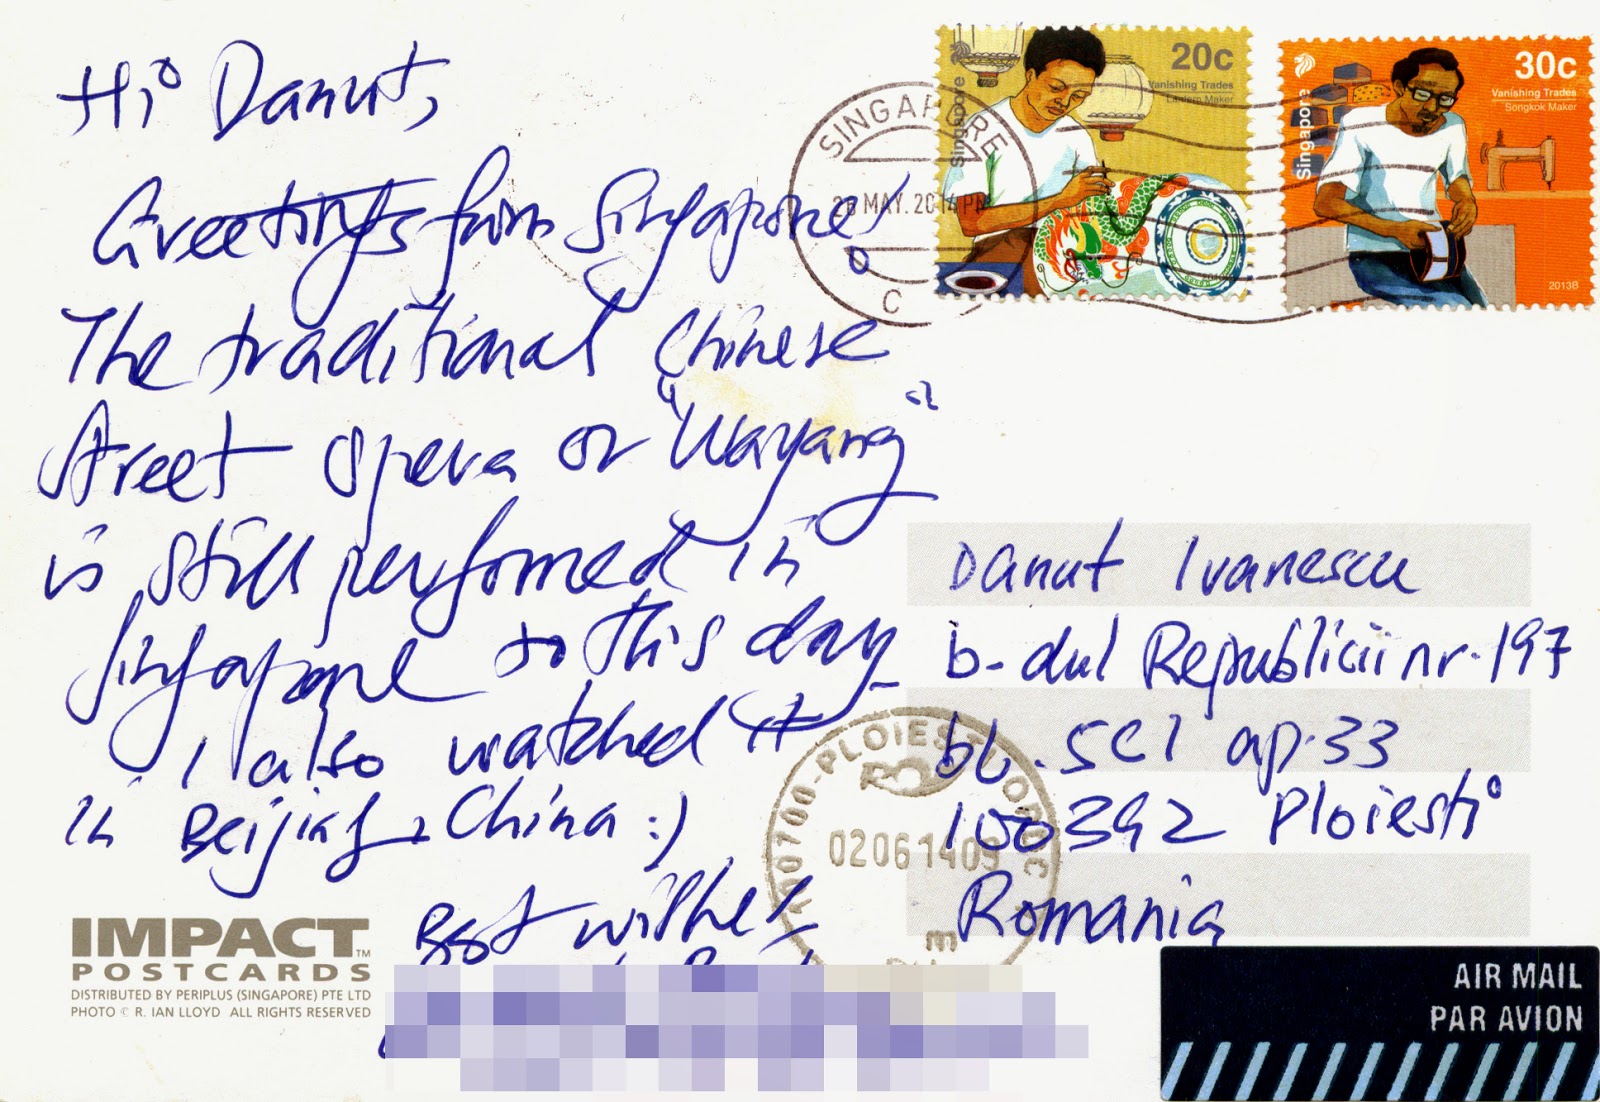 Hi Danut,
Greetings from Singapore!
The traditional Chinese
street opera or "Wayang"
is still performed in
Singapore to this day.
I also watched it
in Beijing, China :)
Best wishes
IMPACT™
POSTCARDS
DISTRIBUTED BY PERIPLUS (SINGAPORE) PTE LTD
PHOTO © R. IAN LLOYD ALL RIGHTS RESERVED
SINGAPORE
MAY. 2014 PM
C
20c
Vanishing Trades
Lantern Maker
Singapore
30c
Vanishing Trades
Songkok Maker
Singapore
2013B
Danut Ivanescu
b-dul Republicii nr. 197
bl. 5C1 ap. 33
100392 Ploiesti
Romania
100700-PLOIESTI
02061409
AIR MAIL
PAR AVION